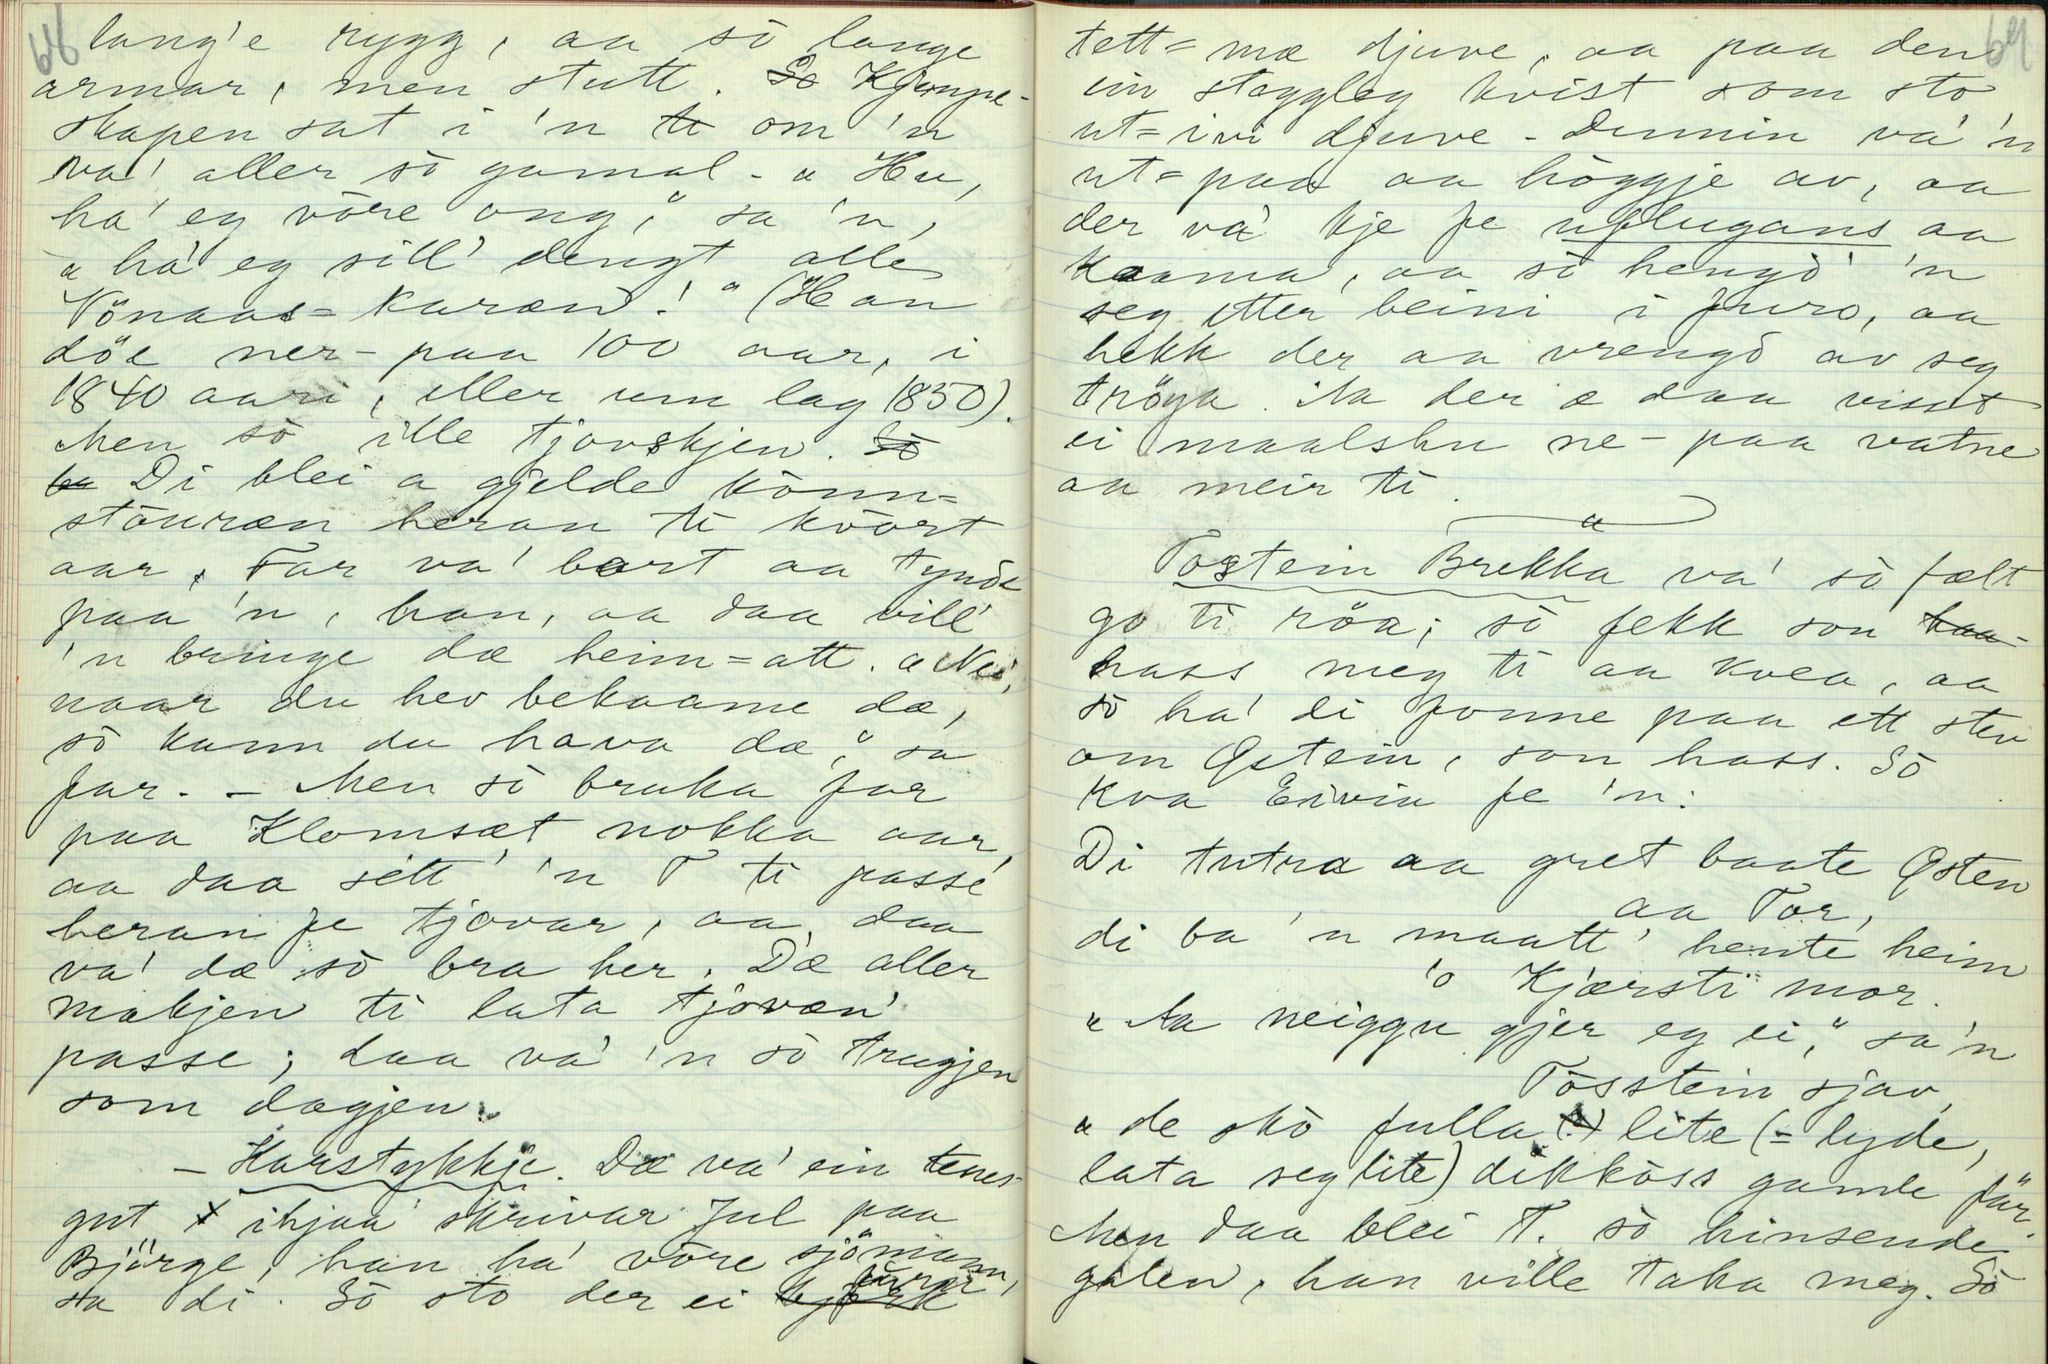 66
lang'e rygg, aa sò lange
armar, men stutt. So Kjempe-
skapen sat i 'n te om 'n
va' aller sò gamal - « Hu,
ha' eg vòre ong," sa 'n,
« ha' eg sill' dengt alle
Vönaas=karæn'!" (Han
döe ner-paa 100 aar, i
1840 aari, eller um lag 1850).
Men sò ille tjovskjen. Sò
ba Di blei a gjelde kònn=
stòuræn heran ti kvòrt
aar. Far va' bort aa tynde
paa 'n, han, aa daa vill'
'n bringe dæ heim=att. « Nei,
naar du hev bekaame dæ,
sò kann du hava dæ," sa
far. - Men sò bruka far
paa Klomsæt nokka aar,
aa daa sett' 'n T ti passe
heran fe tjovar, aa daa
va' dæ sò bra her. Dæ aller
makjen ti lata tjovæn'
passe; daa va' 'n sò trugjen
som dagjen.
- Harstykkje. Dæ va' ein tenes-
gut i ihjaa skrivar Jul paa
Bjørge, han ha' vòre sjömann,
furu,
sa di. Sò sto der ei bjørk
69
tett=mæ djuve, aa paa den
ein steggleg kvist som sto
ut=ivi djuve - Dennin va' 'n
ut=paa aa höggje av, aa
der va' kje fe uflugans aa
kaama, aa sò hengd' 'n
seg etter beini i furo, aa
hekk der aa vrengd av seg
tröya. Aa der æ daa visst
ei maalshu ne-paa vatne
aa meir ti.
Tosstein Brekka va' sò fælt
go ti röa; sò fekk son haa-
hass meg ti aa kvea, aa
sò ha' di fonne paa ett stev
om Øستein, son hass. Sò
kva Eivin fe 'n:
Di tutra aa gret baate Østen
aa Tor,
di ba 'n maatt' hente heim
'o Kjærsti mor.
« Aa neiggu gjer eg ei," sa 'n
Tosstein sjav,
« de skò fulla (?) lite (= lyde,
lata seg lite) dikkòss gamle får
Men daa blei T. sò hinsende
galen, han ville taka meg. Sò